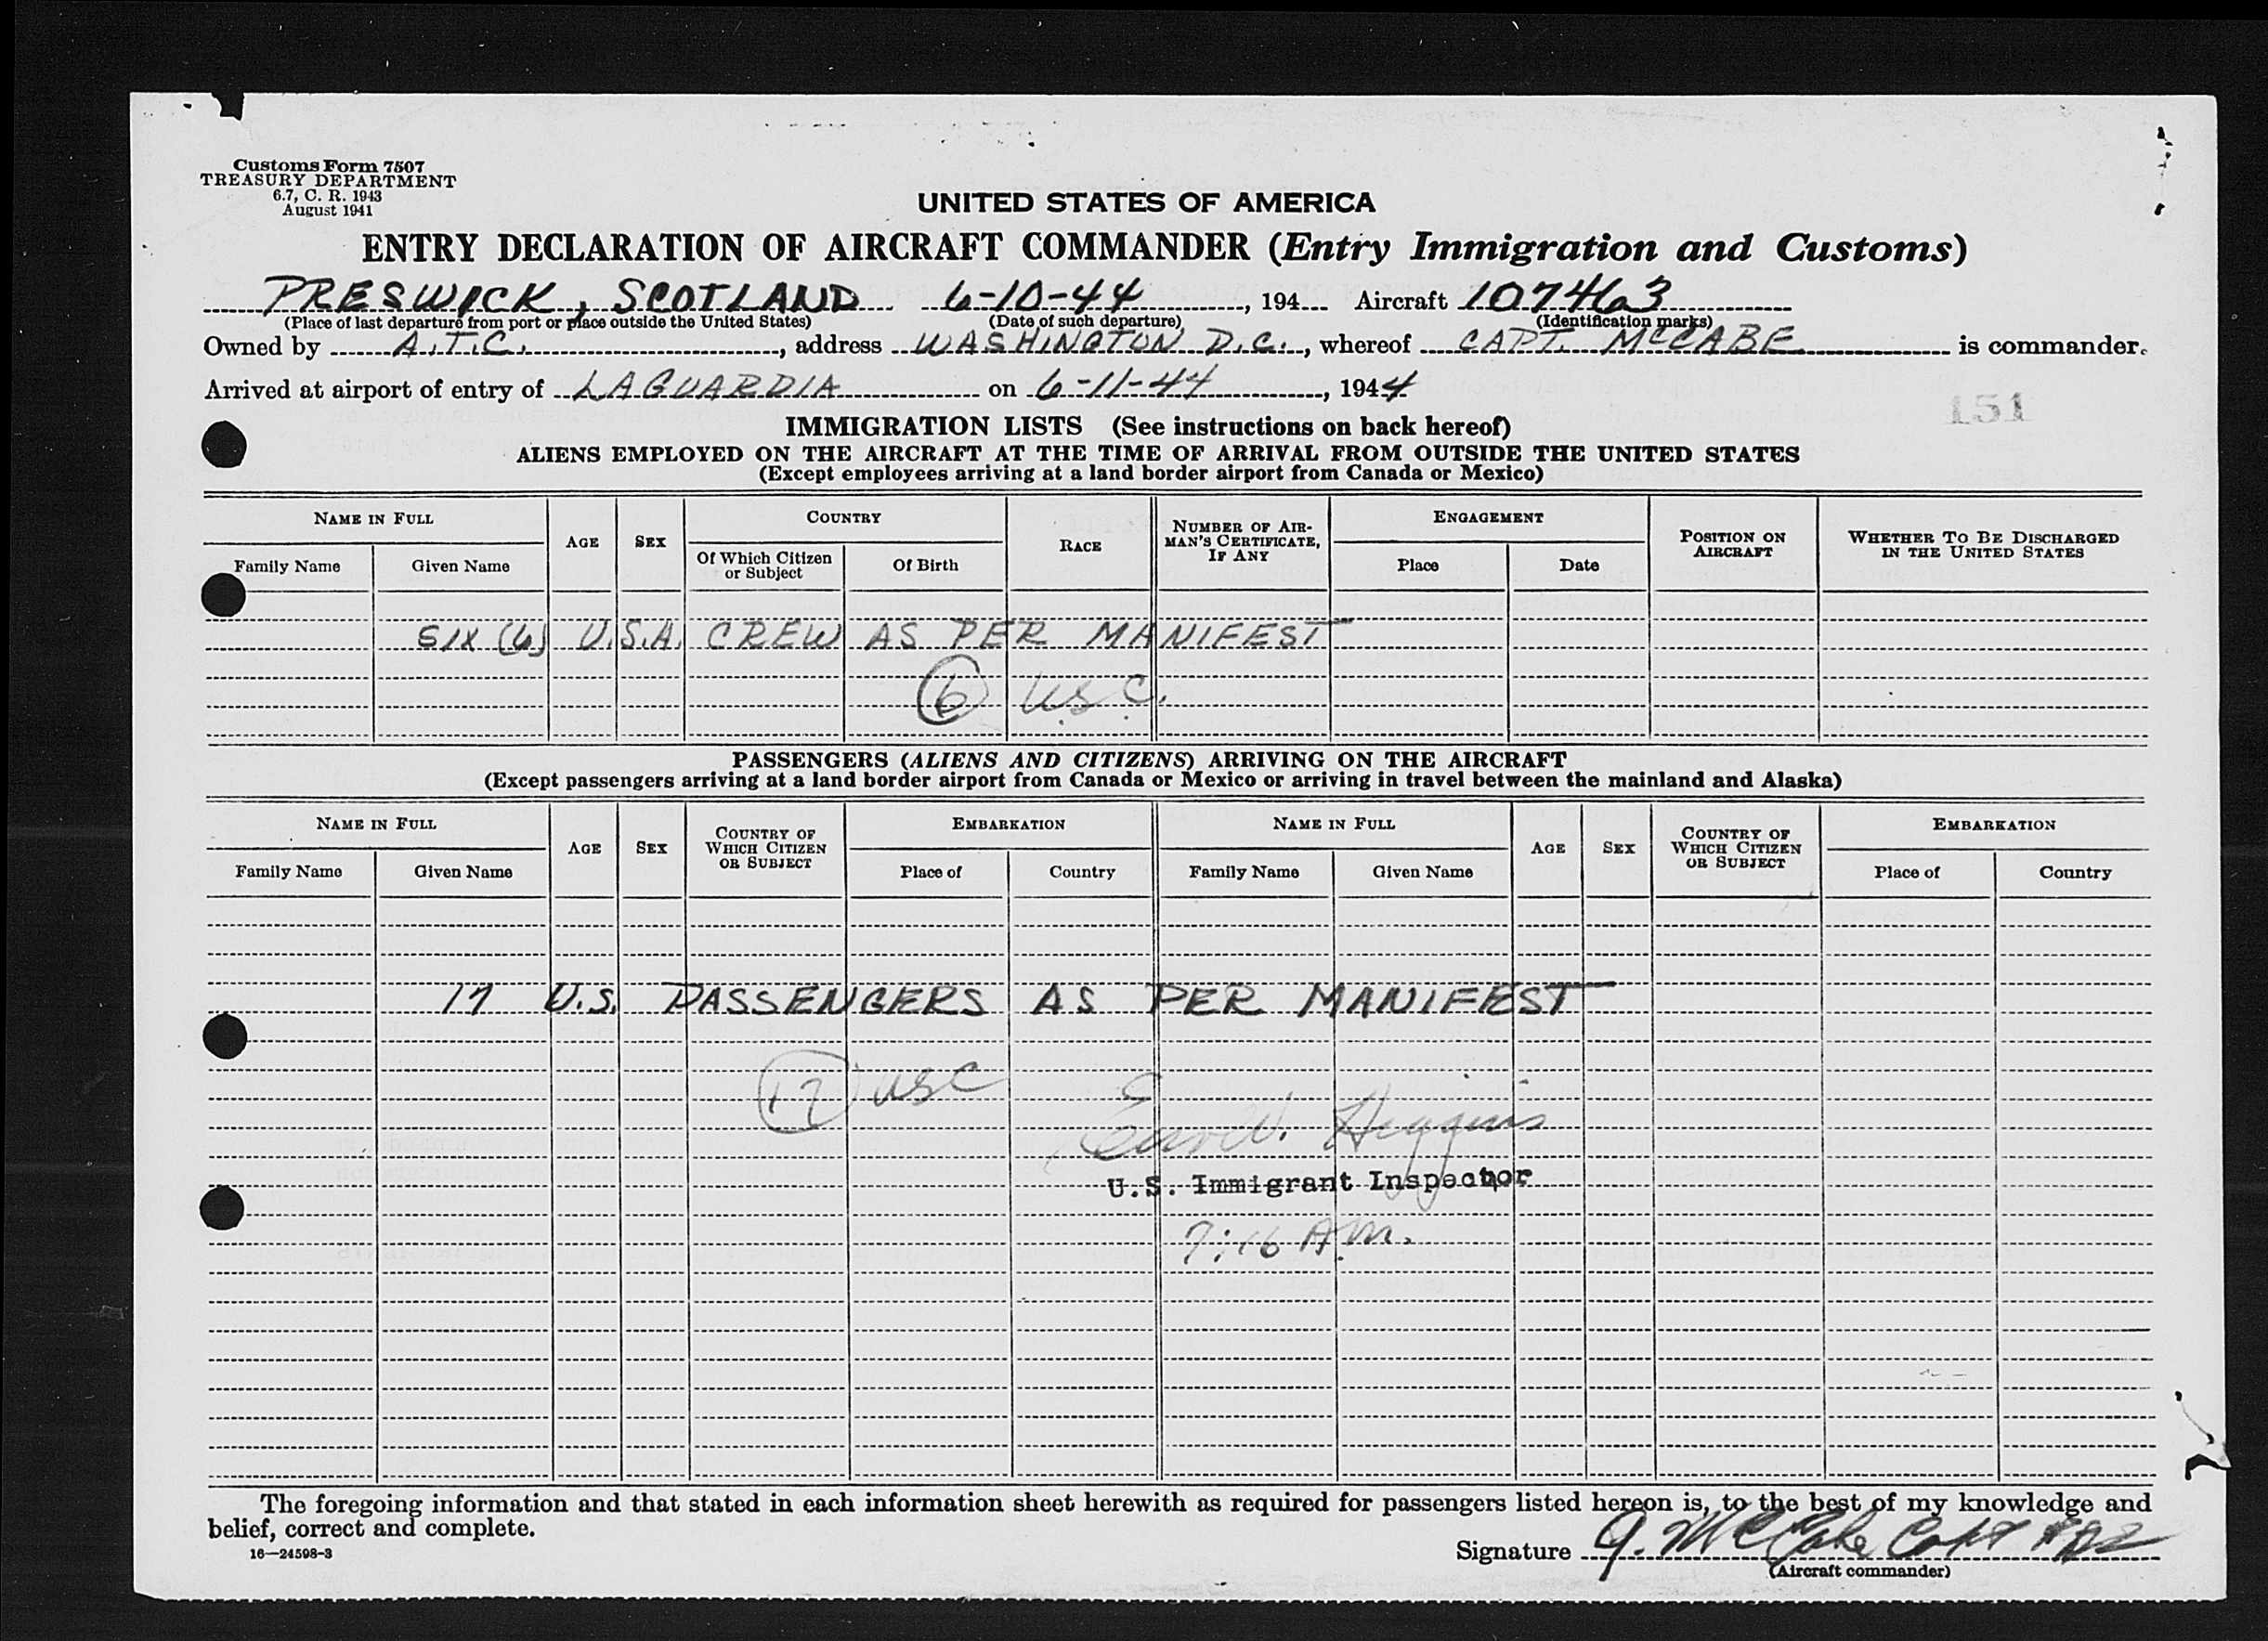 Customs Form 7507
TREASURY DEPARTMENT
6.7, C. R. 1943
August 1941
UNITED STATES OF AMERICA
ENTRY DECLARATION OF AIRCRAFT COMMANDER (Entry Immigration and Customs)
PRESWICK, SCOTLAND 6-10-44, 194 Aircraft 107463
(Place of last departure from port or place outside the United States) (Date of such departure) (Identification marks)
Owned by A.T.C., address WASHINGTON D.C., whereof CAPT. McCABE is commander.
Arrived at airport of entry of LAGUARDIA on 6-11-44, 1944
151
IMMIGRATION LISTS (See instructions on back hereof)
ALIENS EMPLOYED ON THE AIRCRAFT AT THE TIME OF ARRIVAL FROM OUTSIDE THE UNITED STATES
(Except employees arriving at a land border airport from Canada or Mexico)
NAME IN FULL AGE SEX COUNTRY RACE NUMBER OF AIRMAN'S CERTIFICATE, IF ANY ENGAGEMENT POSITION ON AIRCRAFT WHETHER TO BE DISCHARGED IN THE UNITED STATES
Family Name Given Name Of Which Citizen or Subject Of Birth Place Date
SIX (6) U.S.A. CREW AS PER MANIFEST
6 U.S.C.
PASSENGERS (ALIENS AND CITIZENS) ARRIVING ON THE AIRCRAFT
(Except passengers arriving at a land border airport from Canada or Mexico or arriving in travel between the mainland and Alaska)
NAME IN FULL AGE SEX COUNTRY OF WHICH CITIZEN OR SUBJECT EMBARKATION NAME IN FULL AGE SEX COUNTRY OF WHICH CITIZEN OR SUBJECT EMBARKATION
Family Name Given Name Place of Country Family Name Given Name Place of Country
17 U.S. PASSENGERS AS PER MANIFEST
17 USC
W. Higgins
U.S. Immigrant Inspector
7:16 A.M.
The foregoing information and that stated in each information sheet herewith as required for passengers listed hereon is, to the best of my knowledge and
belief, correct and complete.
16—24598-3
Signature J. McCabe Capt
(Aircraft commander)